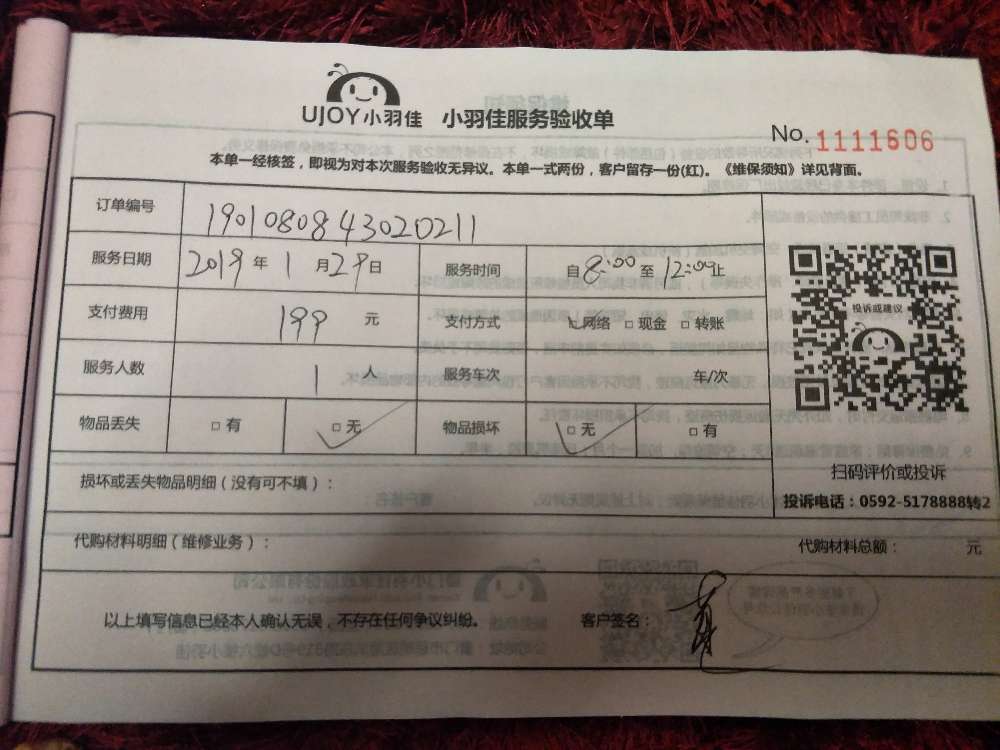 UJOY小羽佳 小羽佳服务验收单
No. 1111606
本单一经核签，即视为对本次服务验收无异议。本单一式两份，客户留存一份(红)。《维保须知》详见背面。
订单编号 1901080843020211
服务日期 2019年1月29日 服务时间 自8:00至12:00止
支付费用 199元 支付方式 □网络 □现金 □转账
投诉或建议
服务人数 1人 服务车次 车/次
物品丢失 □有 □无 物品损坏 □无 □有
扫码评价或投诉
损坏或丢失物品明细（没有可不填）：
投诉电话：0592-5178888转2
代购材料明细（维修业务）： 代购材料总额： 元
以上填写信息已经本人确认无误，不存在任何争议纠纷。 客户签名：